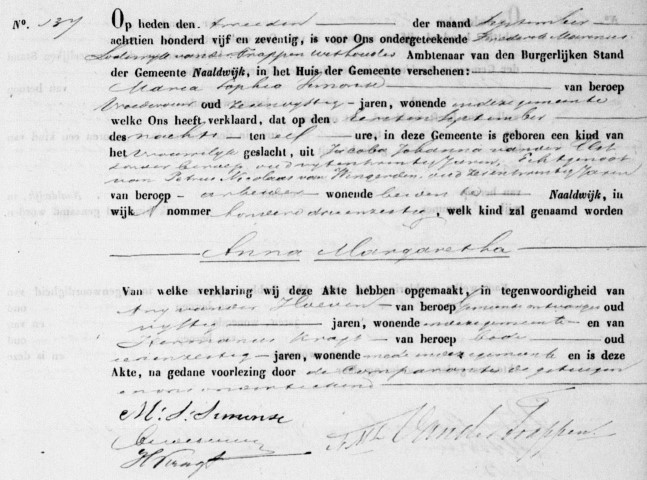 N°. 137 Op heden den tweeden der maand September
achttien honderd vijf en zeventig, is voor Ons ondergetekende Frederik Marinus
Lodewijk van der Trappen wethouder Ambtenaar van den Burgerlijken Stand
der Gemeente Naaldwijk, in het Huis der Gemeente verschenen:
Maria Sophia Simonse van beroep
Vroedvrouw oud zesenvijftig jaren, wonende in deze gemeente
welke Ons heeft verklaard, dat op den eersten September
des nachts ten elf ure, in deze Gemeente is geboren een kind van
het Vrouwelijk geslacht, uit Jacoba Johanna van der
zonder beroep oud vijfentwintig Jaren, Echtgenoot
van Petrus Nicolaas van Wingerden, oud zesentwintig Jaren
van beroep arbeider wonende beiden te Naaldwijk, in
wijk nommer honderd , welk kind zal genaamd worden
Anna Margaretha
Van welke verklaring wij deze Akte hebben opgemaakt, in tegenwoordigheid van
Ary van der Hoeven van beroep Gemeente ontvanger oud
vijftig jaren, wonende in deze gemeente en van
Hermanus Kragt van beroep bode oud
jaren, wonende mede in deze gemeente en is deze
Akte, na gedane voorlezing door de Comparante de getuigen
en ons onderteekend
M. S. Simonse
F M L Vander Trappen
H Kragt